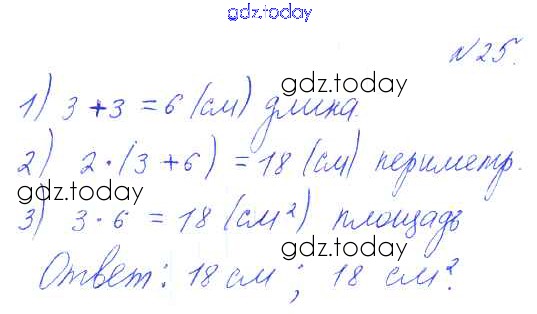 gdz.today
№25.
1) 3 + 3 = 6 (см) длина.
gdz.today
2) 2·(3 + 6) = 18 (см) периметр.
gdz.today
3) 3·6 = 18 (см²) площадь
gdz.today
Ответ: 18 см; 18 см².